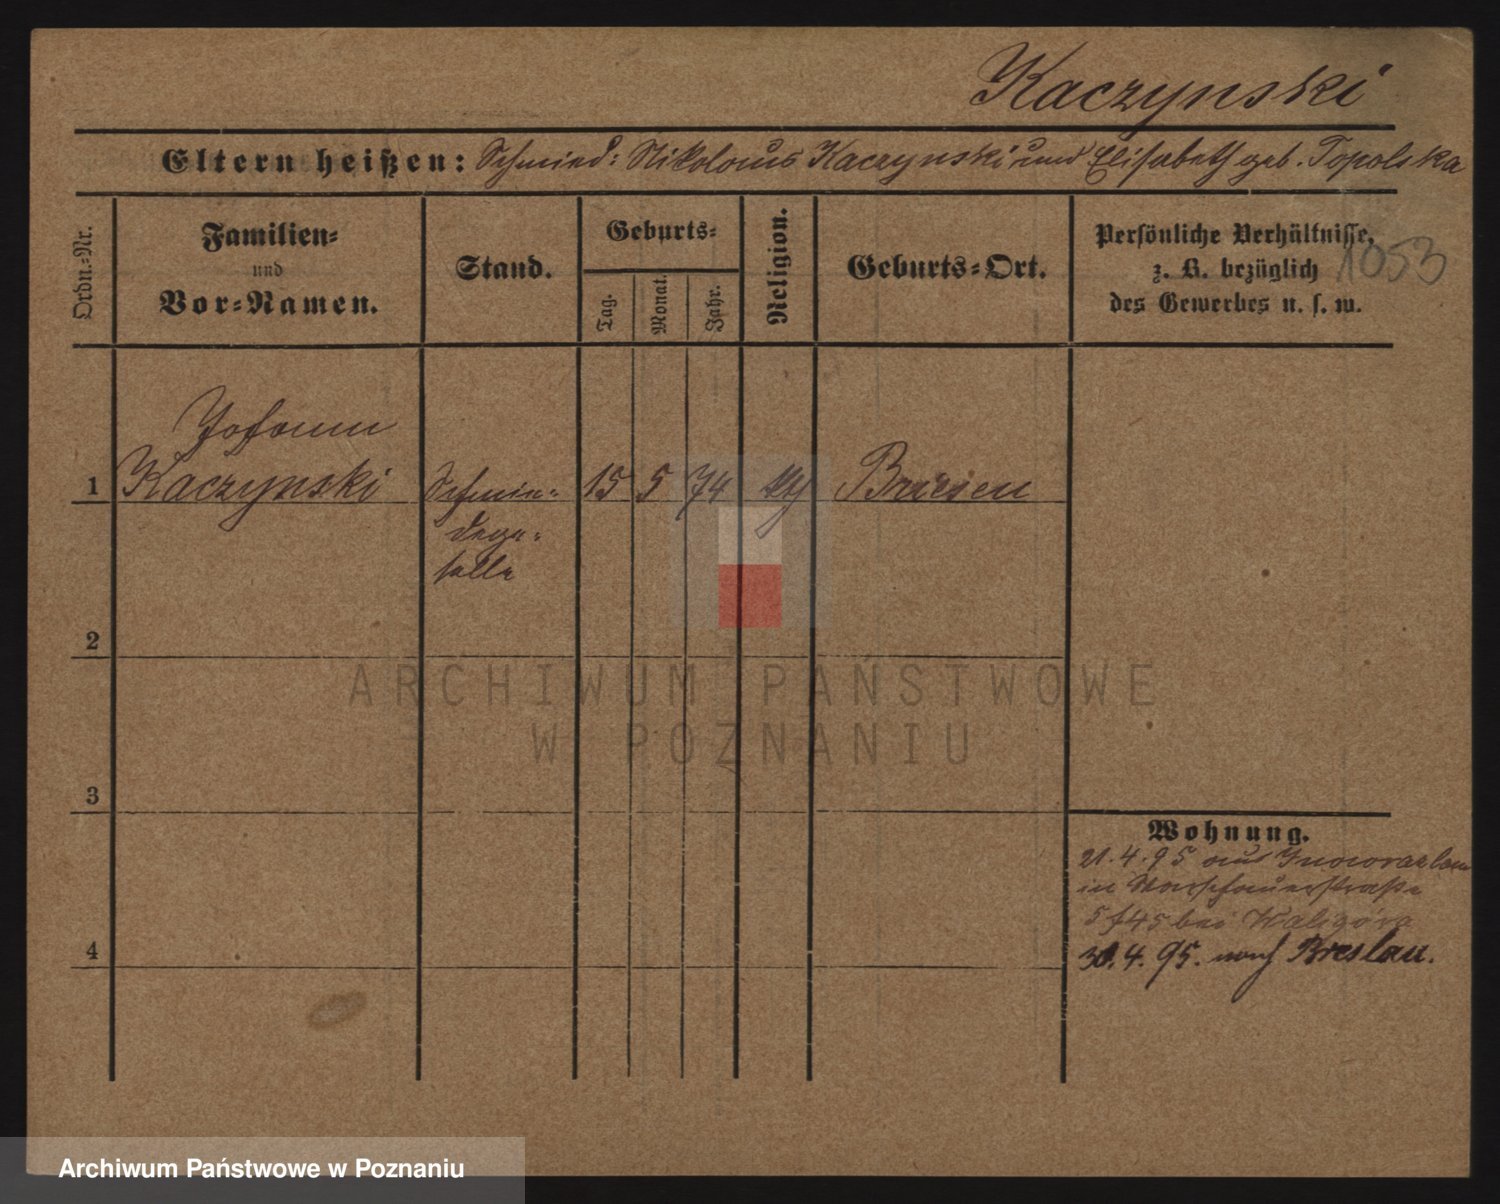 Kaczynski
Eltern heißen: Schmied: Nikolaus Kaczynski und Elisabeth geb. Topolska
Ordn.-Nr.
Familien-
und
Vor-Namen.
Stand.
Geburts-
Tag.
Monat.
Jahr.
Religion.
Geburts-Ort.
Persönliche Verhältnisse,
z. B. bezüglich
des Gewerbes u. s. w.
1053
Johann
1 Kaczynski Schmie- 15 5 74 Briesen
dege-
selle
2
ARCHIWUM PAŃSTWOWE
W POZNANIU
3
Wohnung.
21.4.95 aus Inowrazlaw
in Warschauerstraße
5 f 45 bei Waligóra
4
30.4.95. nach Breslau.
Archiwum Państwowe w Poznaniu